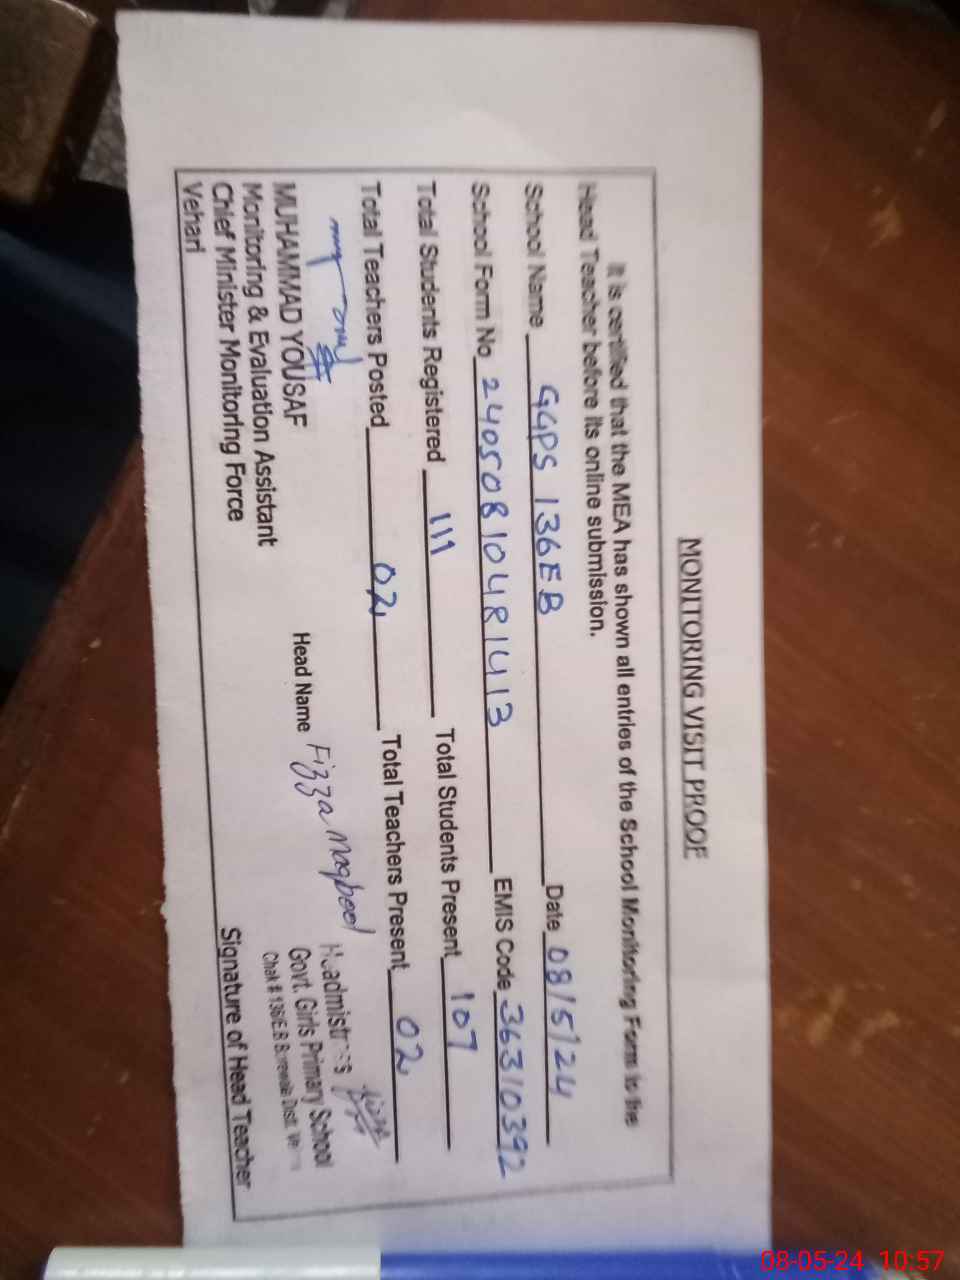 MONITORING VISIT PROOF
It is certified that the MEA has shown all entries of the School Monitoring Form to the
Head Teacher before its online submission.
School Name GGPS 136EB Date 08/5/24
School Form No 24050810481413 EMIS Code 36310392
Total Students Registered 111 Total Students Present 107
Total Teachers Posted 02 Total Teachers Present 02
MUHAMMAD YOUSAF
Monitoring & Evaluation Assistant
Chief Minister Monitoring Force
Vehari
Head Name Fizza Maqbool
Headmistress
Govt. Girls Primary School
Chak # 136/E.B Burewala Distt.
Signature of Head Teacher
08-05-24 10:57